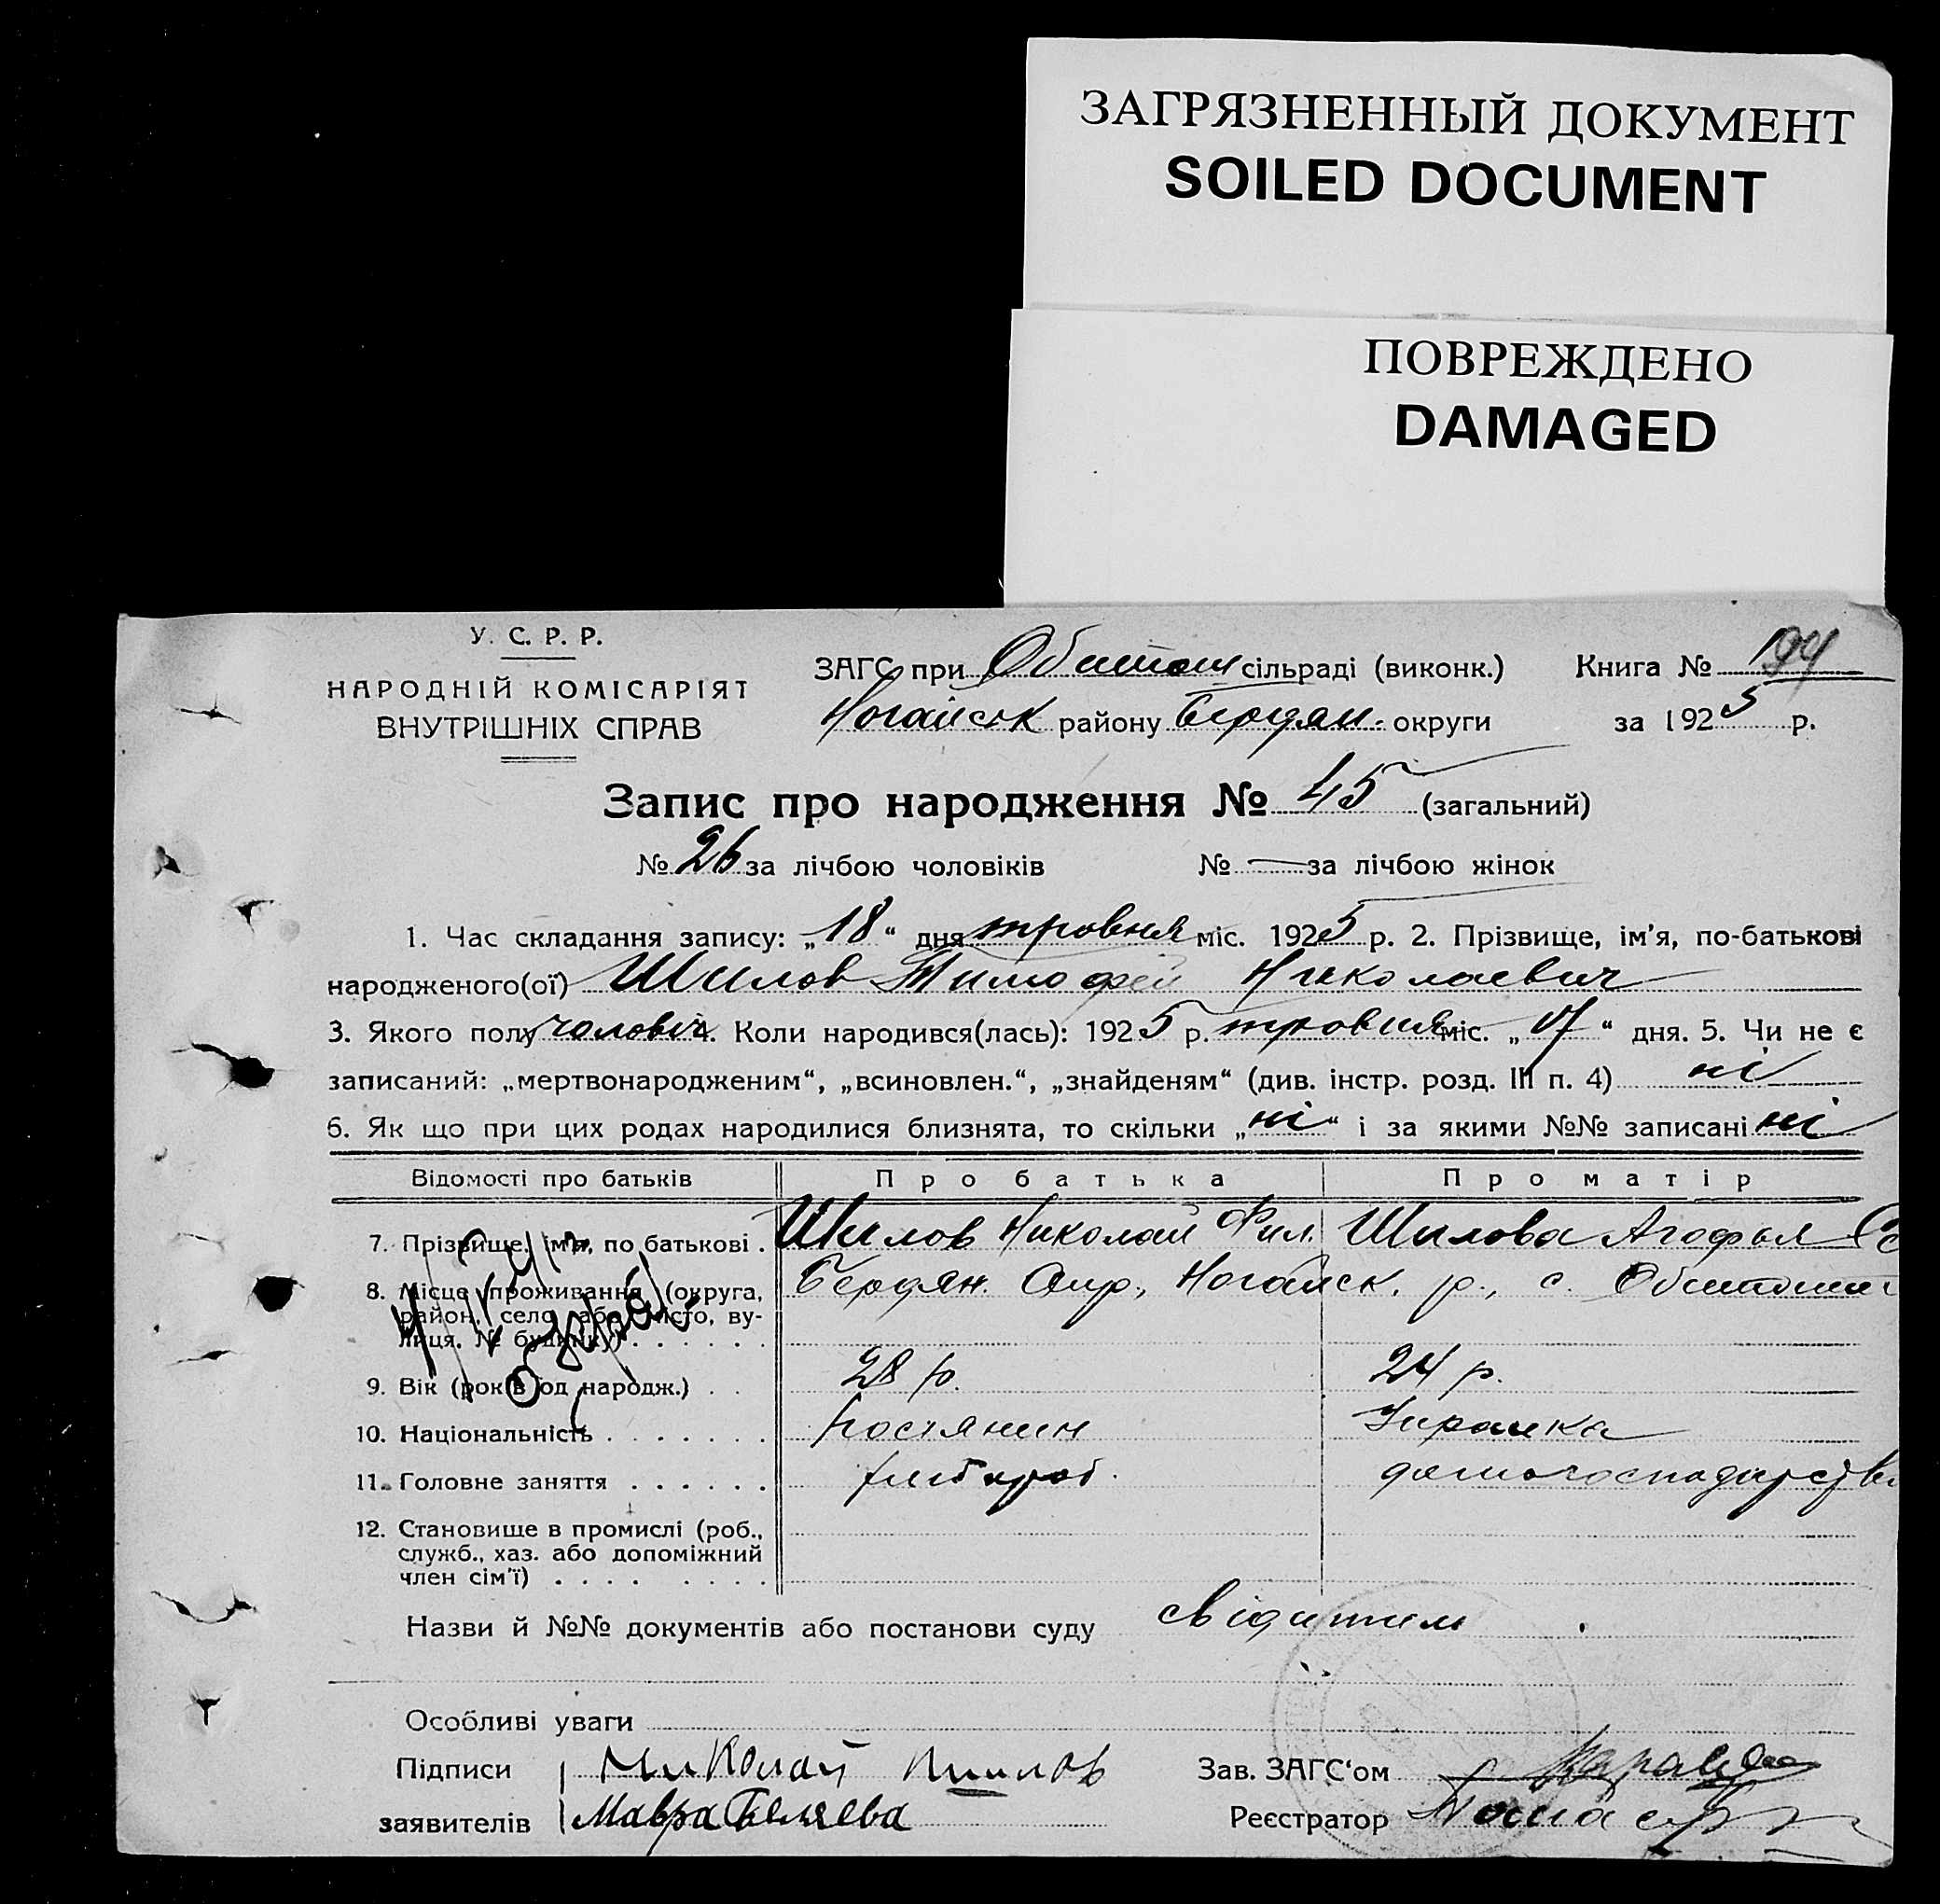 ЗАГРЯЗНЕННЫЙ ДОКУМЕНТ
SOILED DOCUMENT
ПОВРЕЖДЕНО
DAMAGED
У. С. Р. Р.
НАРОДНІЙ КОМІСАРІЯТ
ВНУТРІШНІХ СПРАВ
ЗАГС при Обиточ сільраді (виконк.) Книга № 194
Ногайськ району Бердян. округи за 1925 р.
Запис про народження № 45 (загальний)
№ 26 за лічбою чоловіків № — за лічбою жінок
1. Час складання запису: „18“ дня травня міс. 1925 р. 2. Прізвище, ім’я, по-батькові
народженого(ої) Шилов Тимофей Николаевич
3. Якого полу чоловіч 4. Коли народився(лась): 1925 р. травня міс. „17“ дня. 5. Чи не є
записаний: „мертвонародженим“, „всиновлен.“, „знайденям“ (див. інстр. розд. III п. 4) ні
6. Як що при цих родах народилися близнята, то скільки „ні“ і за якими №№ записані ні
Відомості про батьків Про батька Про матір
7. Прізвище, ім’я, по батькові . Шилов Николай Фил. Шилова Агофья
8. Місце проживання (округа, Бердян. Окр., Ногайск. р., с. Обиточн
район, село або місто, ву-
лиця, № будинку) . . . . . .
9. Вік (років од народж.) . . 28 р. 24 р.
10. Національність . . . . . . .
11. Головне заняття . . . . . . хлібороб. домогосподарств
12. Становище в промислі (роб.,
служб., хаз. або допоміжний
член сім’ї) . . . . . . . .
Назви й №№ документів або постанови суду
Особливі уваги
Підписи Миколай Шилов Зав. ЗАГС‘ом
заявителів Мавра Беляева Реєстратор